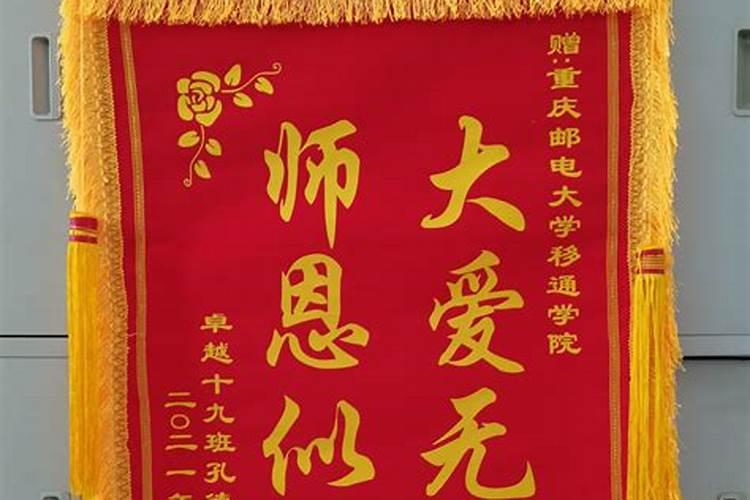 赠:重庆邮电大学移通学院
大爱无
师恩似
卓越十九班孔德
二〇二一年